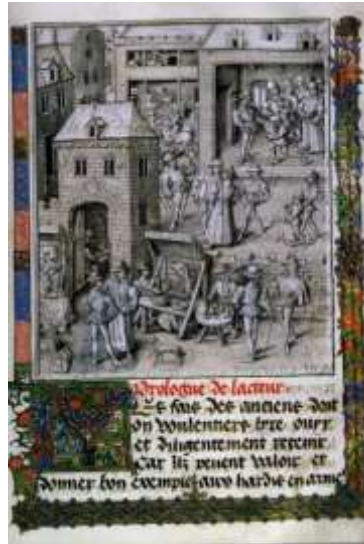 Prologue de lacteur
Es fais des anciens doit
on voulentiers lire ouyr
et diligentement retenir
Car ilz peuent valoir et
donner bon exemple aux hardis en arme